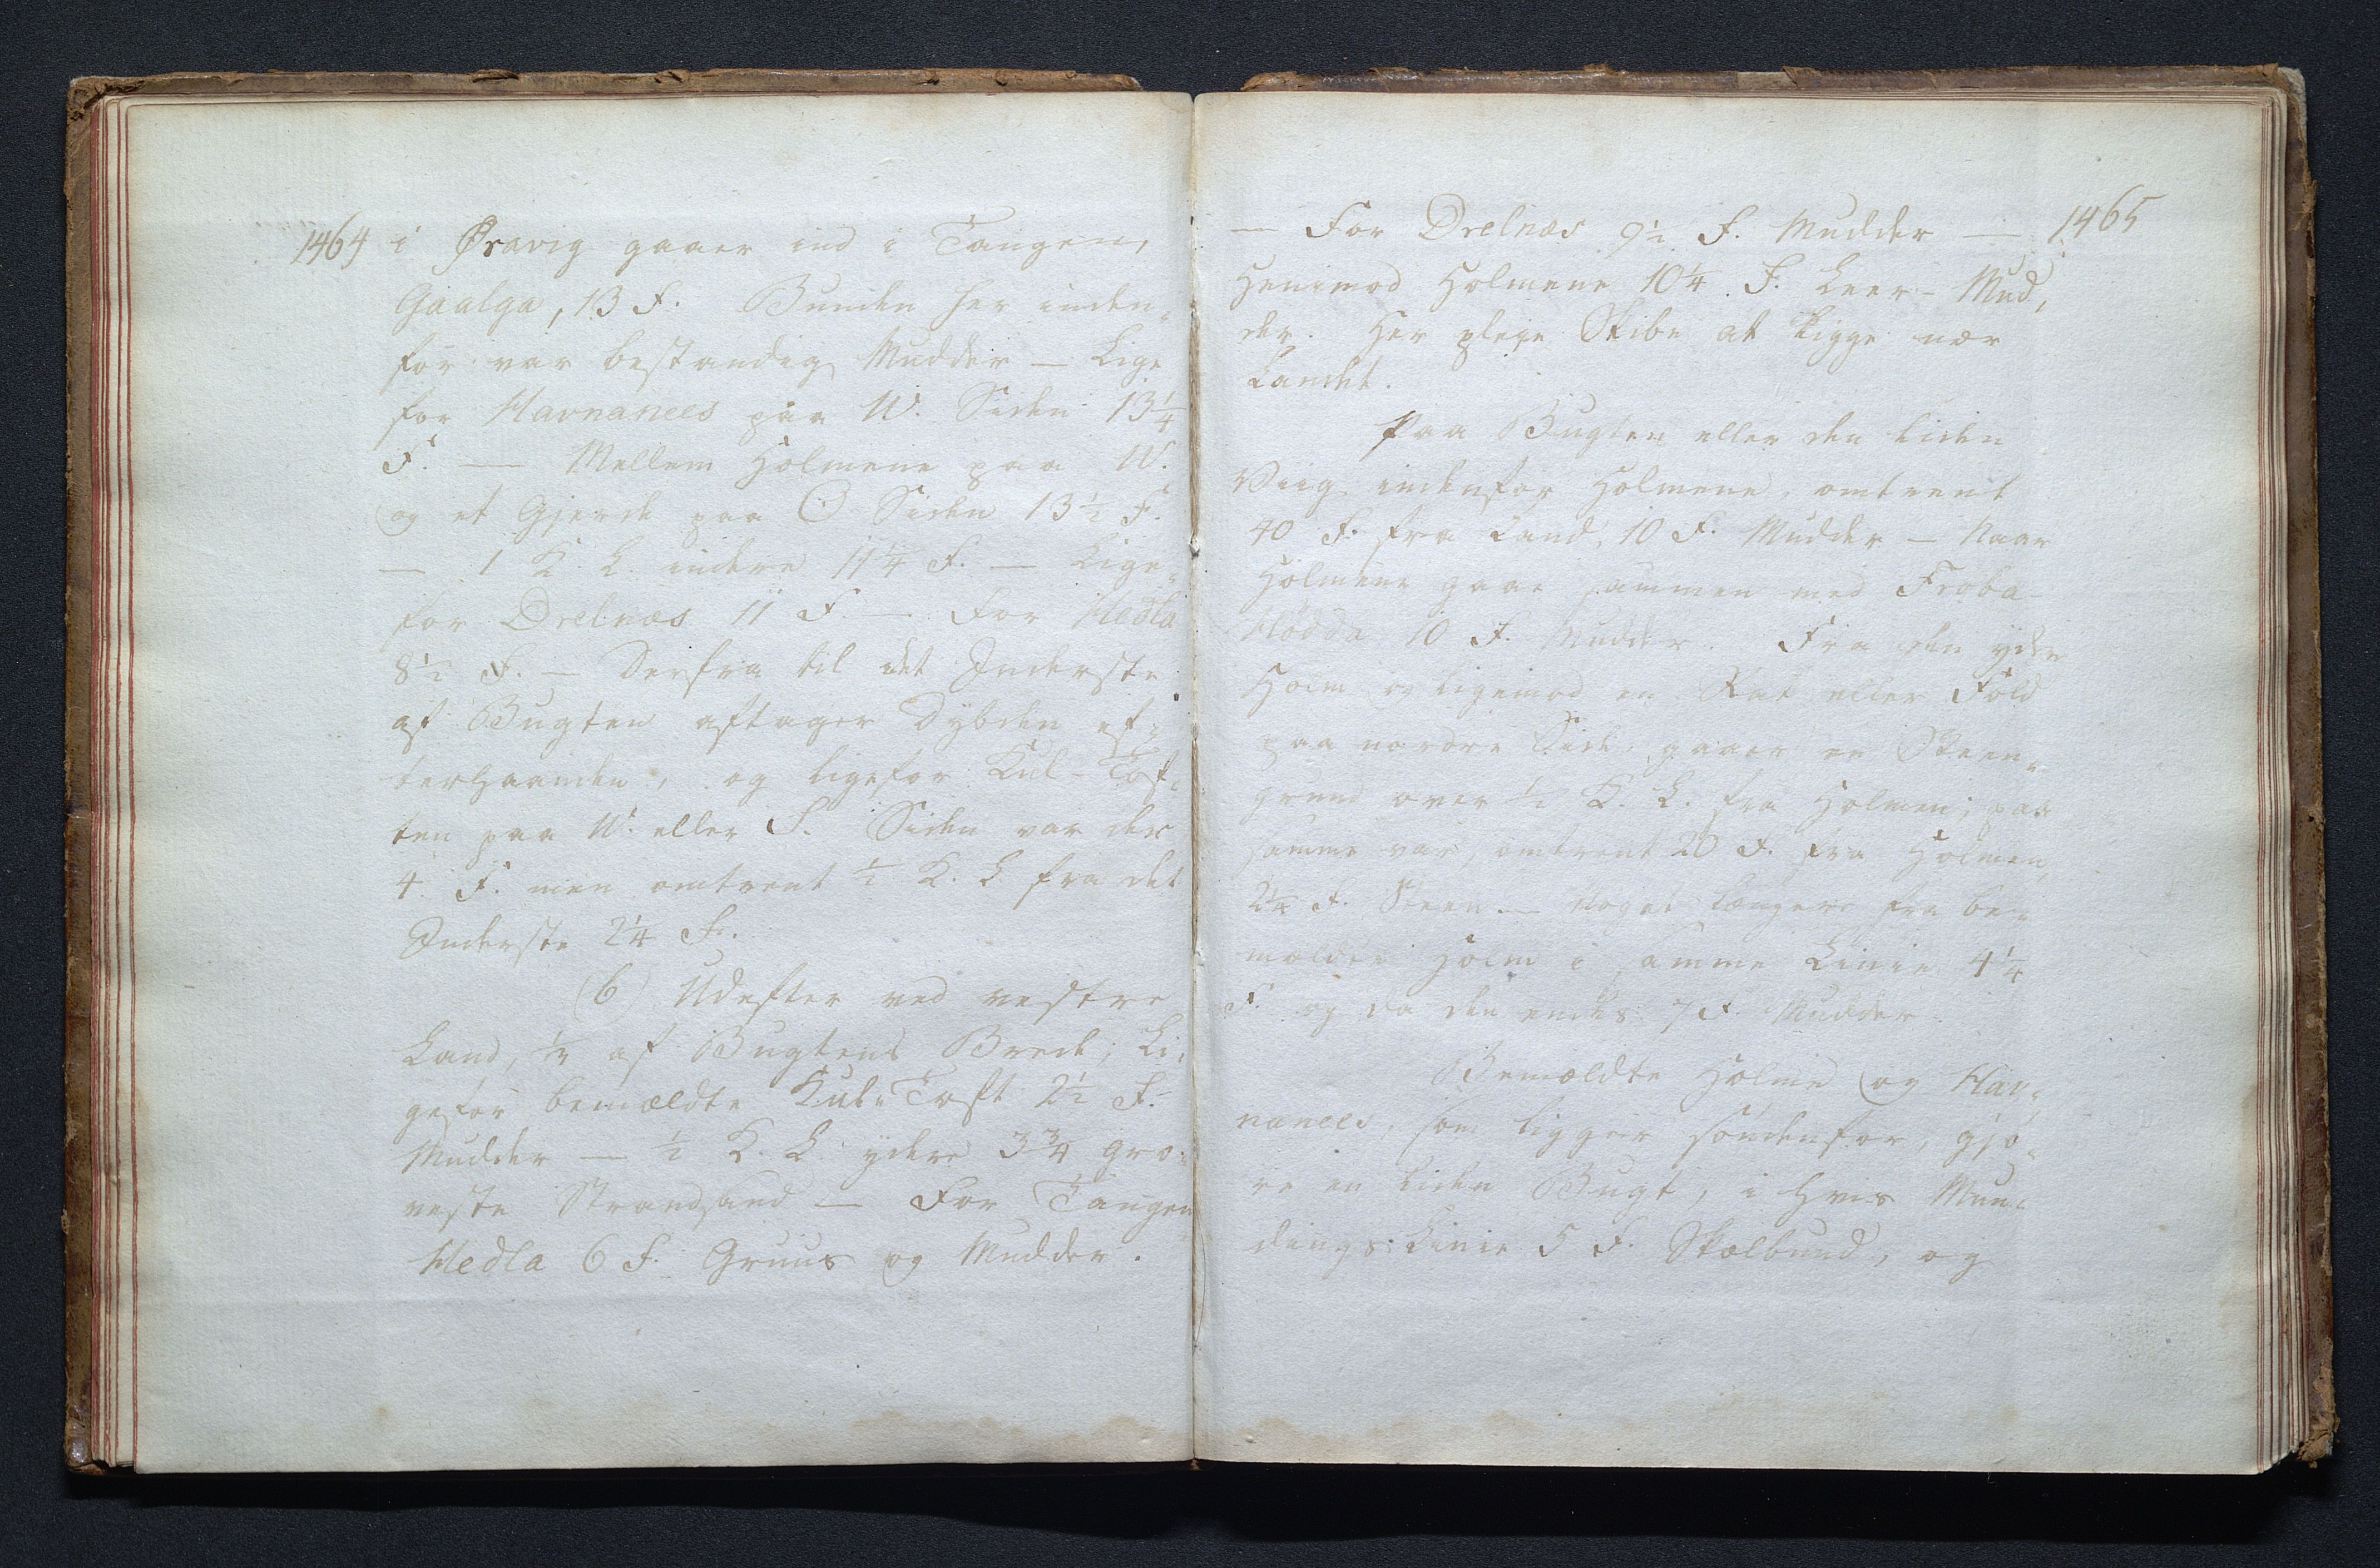 1464
i Øravig gaaer ind i Tangen,
Gaalga, 13 F. Bunden her inden-
for var bestandig Mudder — Lige
for Havnanees paa W. Siden 13 1/4
F. — Mellem Holmene paa W.
og et Gjerde paa O Siden 13 1/2 F.
— 1 K. L. indere 11 1/4 F. — Lige-
for Drelnæs 11 F — For Hedla
8 1/2 F. — Derfra til det Inderste
af Bugten aftager Dybden ef-
terhaanden, og ligefor Kul-Tof-
ten paa W. eller S. Siden var der
4 F. men omtrent 1/2 K. L. fra det
Inderste 2 1/4 F.
(6) Udefter ved vestre
Land, af Bugtens Brede; Li-
gefor bemældte Kule Toft 2 1/2 F.
Mudder — 1/2 K. L. ydere 3 3/4 gro-
veste Strandsand — For Tangen
Hedla 6 F. Gruus og Mudder.
1465
— For Drelnæs 9 1/2 F. Mudder —
Henimod Holmene 10 1/4 F. Leer-Mud,
der. Her pleye Skibe at ligge nær
Landet.
Paa Bugten eller den liden
Viig indenfor Holmene, omtrent
40 F. fra Land, 10 F. Mudder — Naar
Holmene gaae sammen med Froba-
Hødda 10 F. Mudder. Fra den ydre
Holm og ligemod en Rat eller Fold
paa nordre Side, gaaer en Steen-
grund over 1/2 K. L. fra Holmen; paa
samme var, omtrent 20 F. fra Holmen,
2 1/4 F. Steen. — Noget længere fra be-
mældte Holm i samme Linie 4 1/4
F. og da den endes 7 F. Mudder
Bemældte Holme og Hav-
nanees, som ligger søndenfor, gjø-
re en liden Bugt, i hvis Mun-
dings Linie 5 F. Skælbund, og